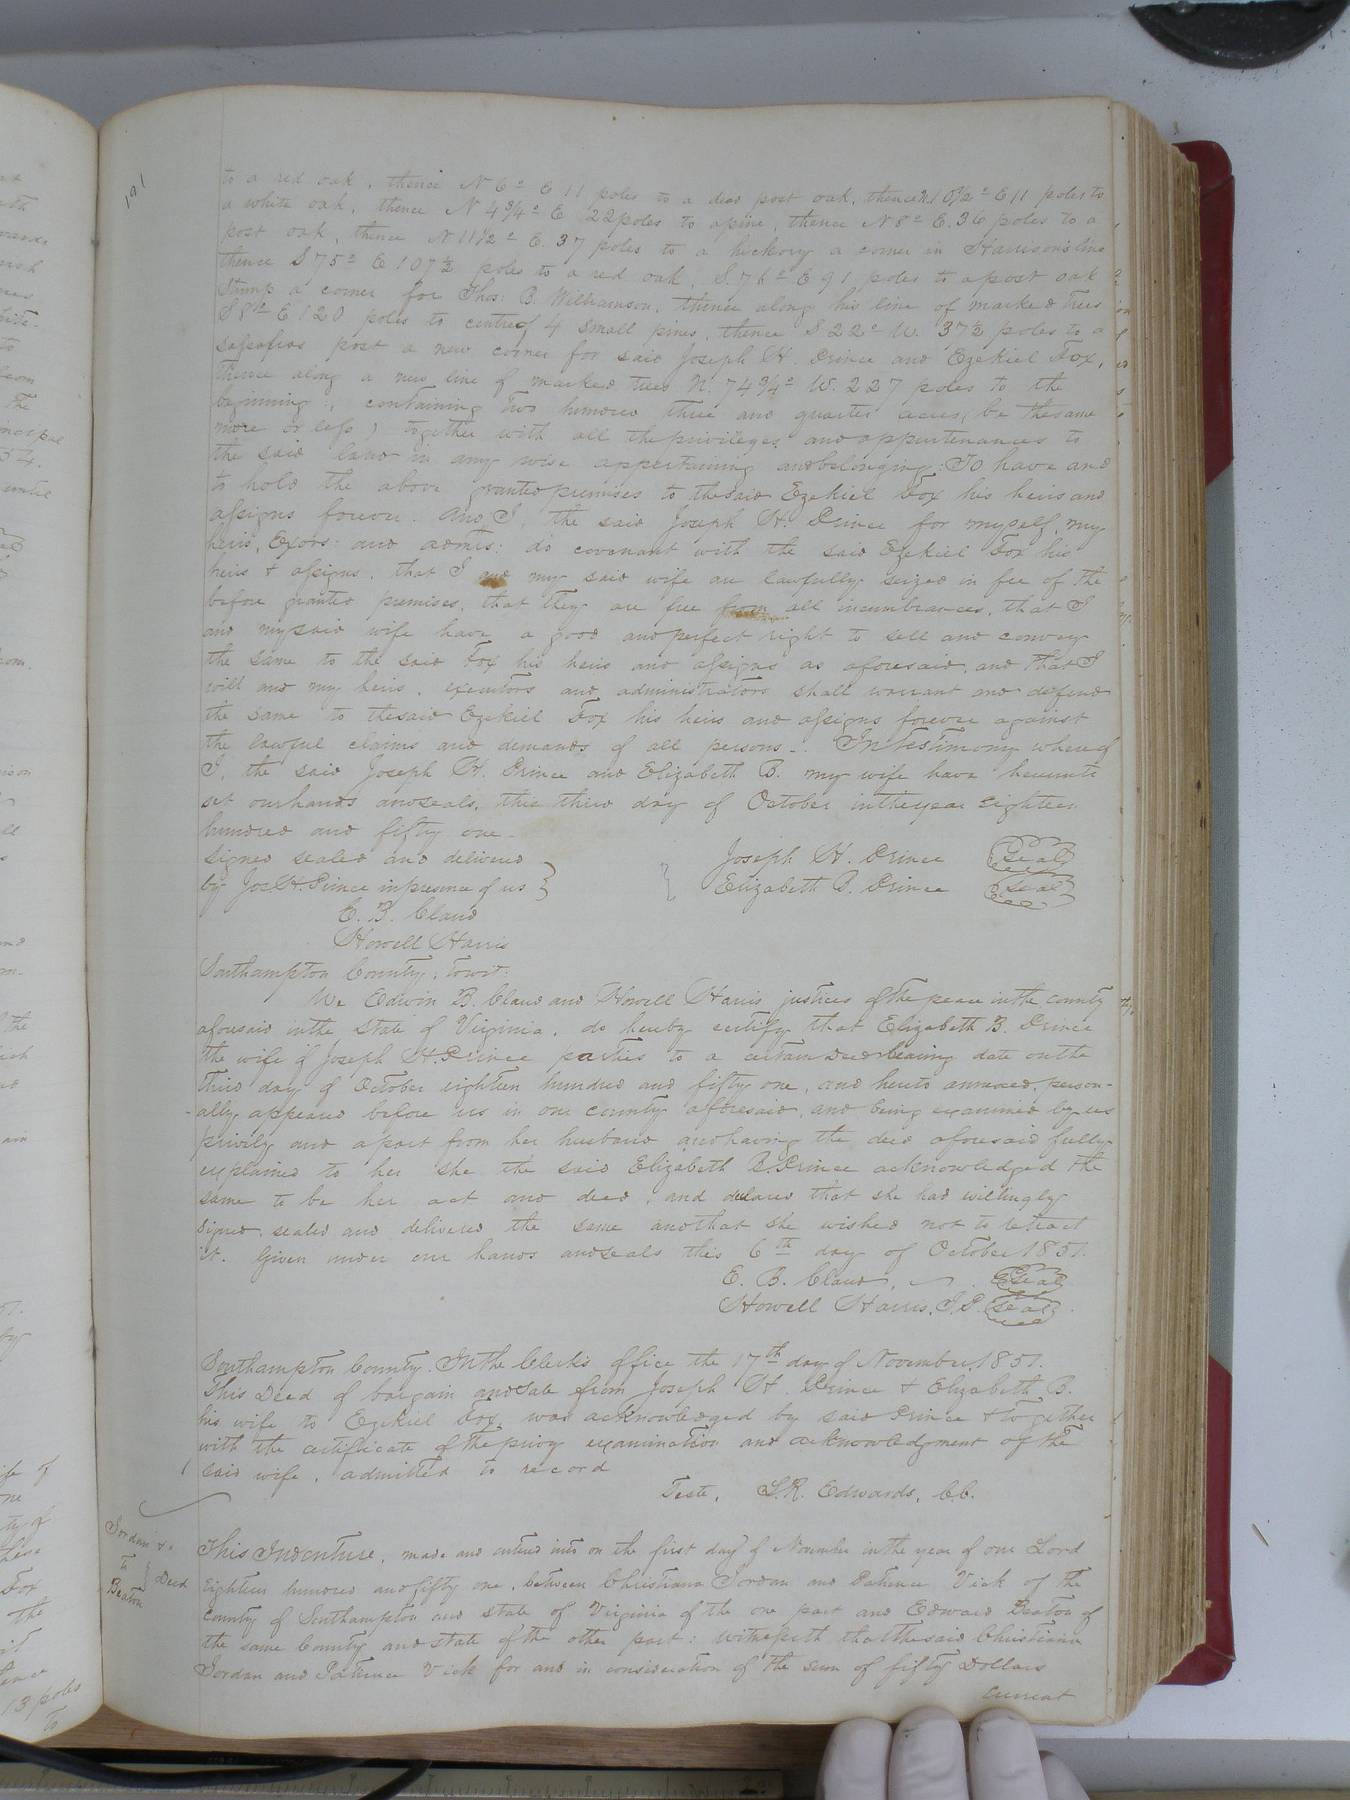 191
to a red oak, thence N 6° E 11 poles to a dead post oak, thence N 10½° E 11 poles to
a white oak, thence N 4¾° E 22 poles to a pine, thence N 8° E. 36 poles to a
post oak, thence N 11½° E. 37 poles to a hickory a corner in Harrison's line
thence S 75° E 107½ poles to a red oak, S 76° E 91 poles to a post oak
Stump a corner for Thos: B. Williamson, thence along his line of marked trees
S 8° E 120 poles to centre of 4 small pines, thence S 22° W. 37½ poles to a
sassafras post a new corner for said Joseph H. Prince and Ezekiel Fox,
thence along a new line of marked trees N. 74¾° W. 227 poles to the
beginning; containing two hundred three and quarter acres (be the same
more or less) together with all the privileges and appurtenances to
the said land in any wise appertaining and belonging: To have and
to hold the above granted premises to the said Ezekiel Fox his heirs and
assigns forever. And I, the said Joseph H. Prince for myself, my
heirs, Exors: and admts: do covenant with the said Ezekiel Fox his
heirs & assigns, that I and my said wife are lawfully seized in fee of the
before granted premises, that they are free from all incumbrances, that I
and my said wife have a good and perfect right to sell and convey
the same to the said Fox his heirs and assigns as aforesaid, and that I
will and my heirs, executors and administrators shall warrant and defend
the same to the said Ezekiel Fox his heirs and assigns forever against
the lawful claims and demands of all persons. In testimony whereof
I, the said Joseph H. Prince and Elizabeth B. my wife have hereunto
set our hands and seals, this third day of October in the year eighteen
hundred and fifty one.
Signed sealed and delivered
by Jos. H. Prince in presence of us
Joseph H. Prince Seal
Elizabeth B. Prince Seal
E. B. Claud
Howell Harris
Southampton County, towit:
We Edwin B. Claud and Howell Harris justices of the peace in the county
aforesaid in the State of Virginia, do hereby certify that Elizabeth B. Prince
the wife of Joseph H. Prince parties to a certain deed bearing date on the
third day of October eighteen hundred and fifty one, and hereto annexed, person-
ally appeared before us in our county aforesaid, and being examined by us
privily and apart from her husband and having the deed aforesaid fully
explained to her she the said Elizabeth B. Prince acknowledged the
same to be her act and deed, and declared that she had willingly
signed, sealed and delivered the same and that she wished not to retract
it. Given under our hands and seals this 6th day of October 1851.
E. B. Claud, Seal
Howell Harris, J.P. Seal
Southampton County. In the Clerk's Office the 17th day of November, 1851.
This Deed of bargain and sale from Joseph H. Prince & Elizabeth B.
his wife to Ezekiel Fox, was acknowledged by said Prince & together
with the certificate of the privy examination and acknowledgment of the
said wife, admitted to record
Teste, L.R. Edwards, C.C.
Jordan &c
to Deed
Beaton
This Indenture, made and entered into on the first day of November in the year of our Lord
Eighteen hundred and fifty one, between Christiana Jordan and Patience Vick of the
County of Southampton and state of Virginia of the one part and Edward Beaton of
the same County and state of the other part: witnesseth that the said Christiana
Jordan and Patience Vick for and in consideration of the sum of fifty Dollars
current